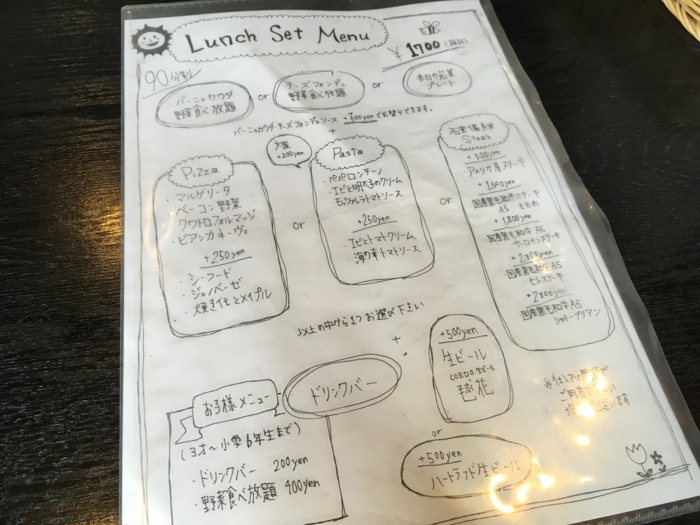 Lunch Set Menu
¥1700
90分制
バーニャカウダ
野菜食べ放題
or
チーズフォンデュ
野菜食べ放題
or
本日の前菜
プレート
バーニャカウダ・チーズフォンデュソース +300yenでお替りできます。
+
Pizza
・マルゲリータ
・ベーコン野菜
・クワトロフォルマッジ
・ビアンカネーヴェ
+250yen
・シーフード
・ジェノベーゼ
・焼きイモとメイプル
or
大盛
+200yen
Pasta
・ペペロンチーノ
・エビと明太子のクリーム
・モッツァレラトマトソース
+250yen
・エビとトマトクリーム
・海の幸トマトソース
or
Steak
+300yen
アメリカ産ステーキ
国産黒毛和牛ステーキ
A5 モモ肉
+1,800yen
国産黒毛和牛 A5
サーロインステーキ
国産黒毛和牛 A5
ヒレステーキ
+2800yen
国産黒毛和牛A5
シャトーブリアン
以上の中から1つお選び下さい
+
ドリンクバー
+500yen
生ビール
COEDO生ビール
毬花
or
+500yen
ハートランド生ビール
お子様メニュー
(3才~小学6年生まで)
・ドリンクバー 200yen
・野菜食べ放題 400yen
ございます